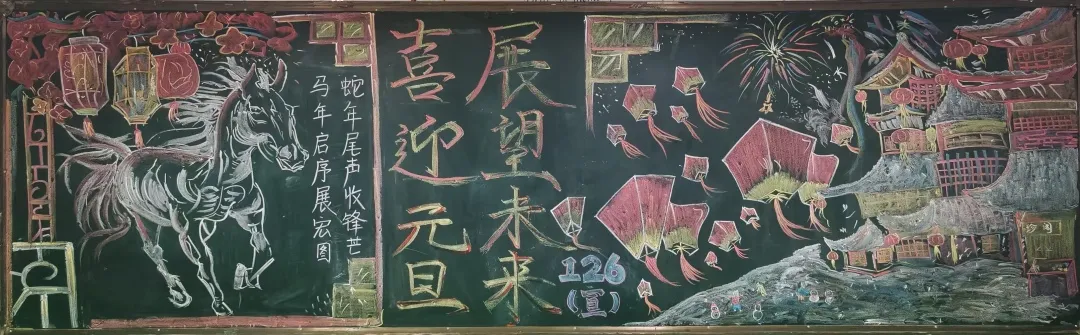 蛇年尾声收锋芒
马年启序展宏图
展望未来
喜迎元旦
126
(宣)